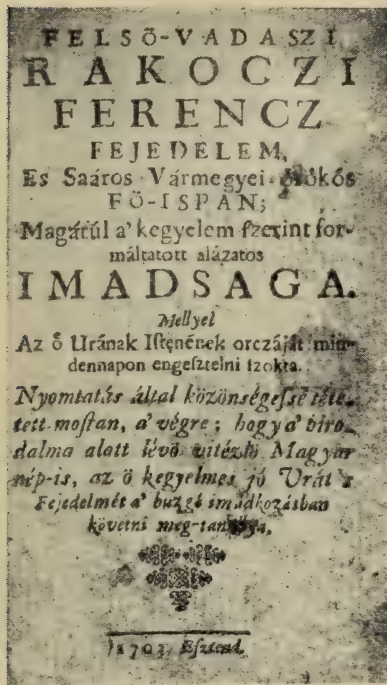 FELSŐ-VADASZI
RAKOCZI
FERENCZ
FEJEDELEM,
Es Saáros Vármegyei örökös
FŐ-ISPÁN;
Magátúl a' kegyelem ſzerint for-
máltatott alázatos
IMADSAGA.
Mellyel
Az ő Urának Iſtenének orczáját min-
dennapon engeſztelni ſzokta.
Nyomtatás által közönségeſsé téte-
tett moſtan, a' végre; hogy a' biro-
dalma alatt lévő vitézlő Magyar
nép-is, az ő kegyelmes jó Urát 's
Fejedelmét a' buzgó imádkozásban
követni meg-tanúlja.
1703. Eſztend.